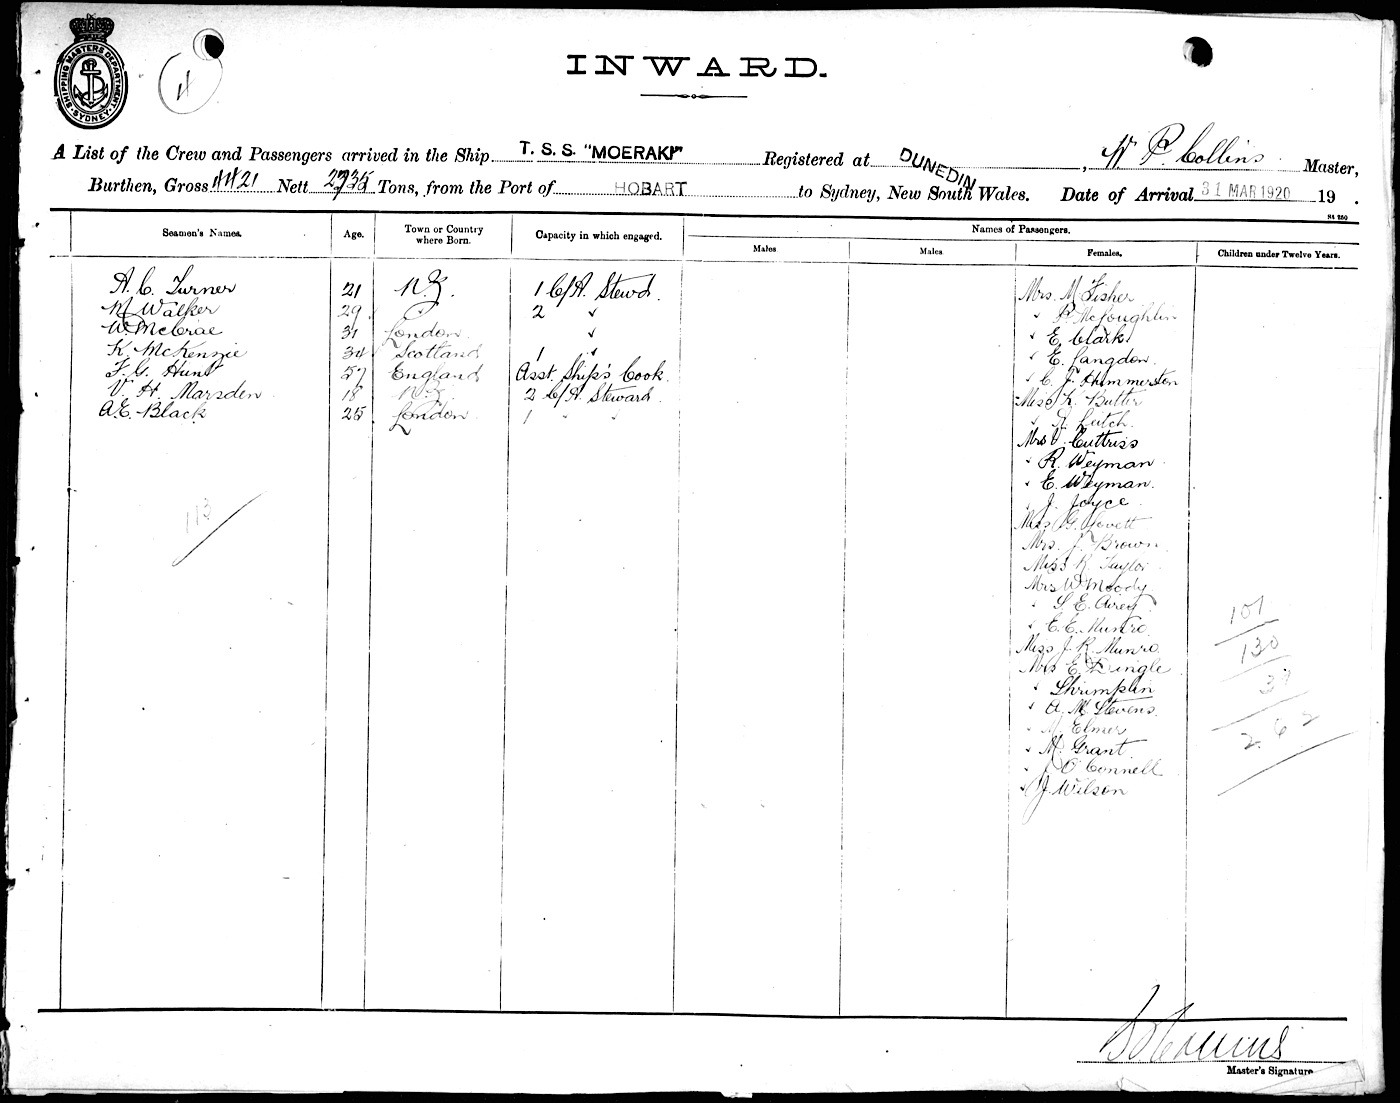 SHIPPING MASTERS DEPARTMENT
SYDNEY
INWARD.
A List of the Crew and Passengers arrived in the Ship T. S. S. "MOERAKI" Registered at DUNEDIN, W P. Collins Master,
Burthen, Gross 4421 Nett Tons, from the Port of HOBART to Sydney, New South Wales. Date of Arrival 31 MAR 1920 19 .
Names of Passengers.
Seamen's Names. Age. Town or Country where Born. Capacity in which engaged. Males Males Females. Children under Twelve Years.
A. C. Turner 21 N.Z. 1 C/A. Stewd.
M Walker 29 " 2 "
W. McCrae 31 London "
K. McKenzie 34 Scotland 1 "
F. G. Hunt 57 England Asst. Ship's Cook.
V. H. Marsden 18 N.Z. 2 C/A. Steward.
A.E. Black 25 London 1 " "
113
Mrs. M Fisher
" P. McLoughlin
" E. Clark
" E. Langdon
" C. J. Hummerston
Miss K. Butler
" Lutch
Mrs V. Cuttriss
" R. Weyman
" E. Weyman.
" J. Joyce
Miss G. Lovett
Mrs. J. Brown
Miss K. Taylor
Mrs W Moody
" S. E. Airey
" E. E. Munro
Miss J. R. Munro
Mrs E. Dingle
" Shrimplin
" A. M. Stevens.
" M. Elmer
" M. Grant
" J. O'Connell
" J. Wilson
101
130
262
Master's Signature